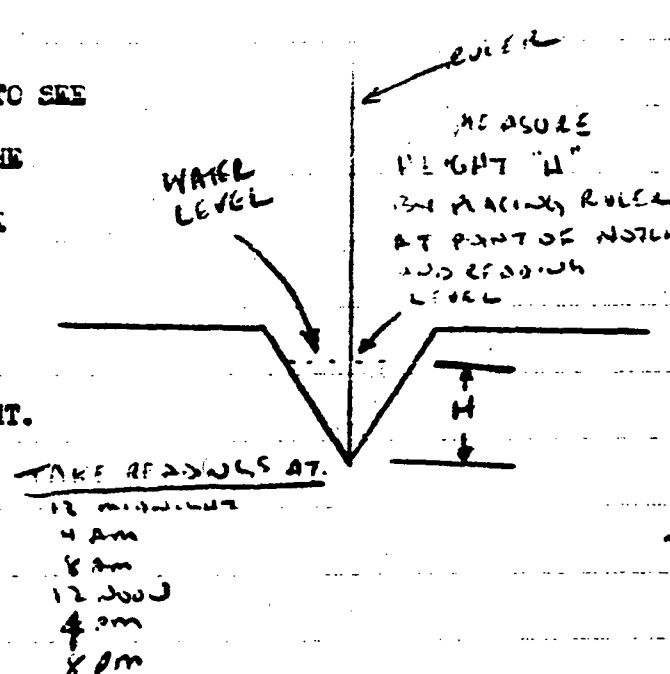 TO SEE
RULER
MEASURE
HEIGHT "H"
BY PLACING RULER
AT POINT OF NOTCH
AND READING
LEVEL
WATER
LEVEL
H
TAKE READINGS AT.
12 MIDNIGHT
4 AM
8 AM
12 NOON
4 PM
8 PM